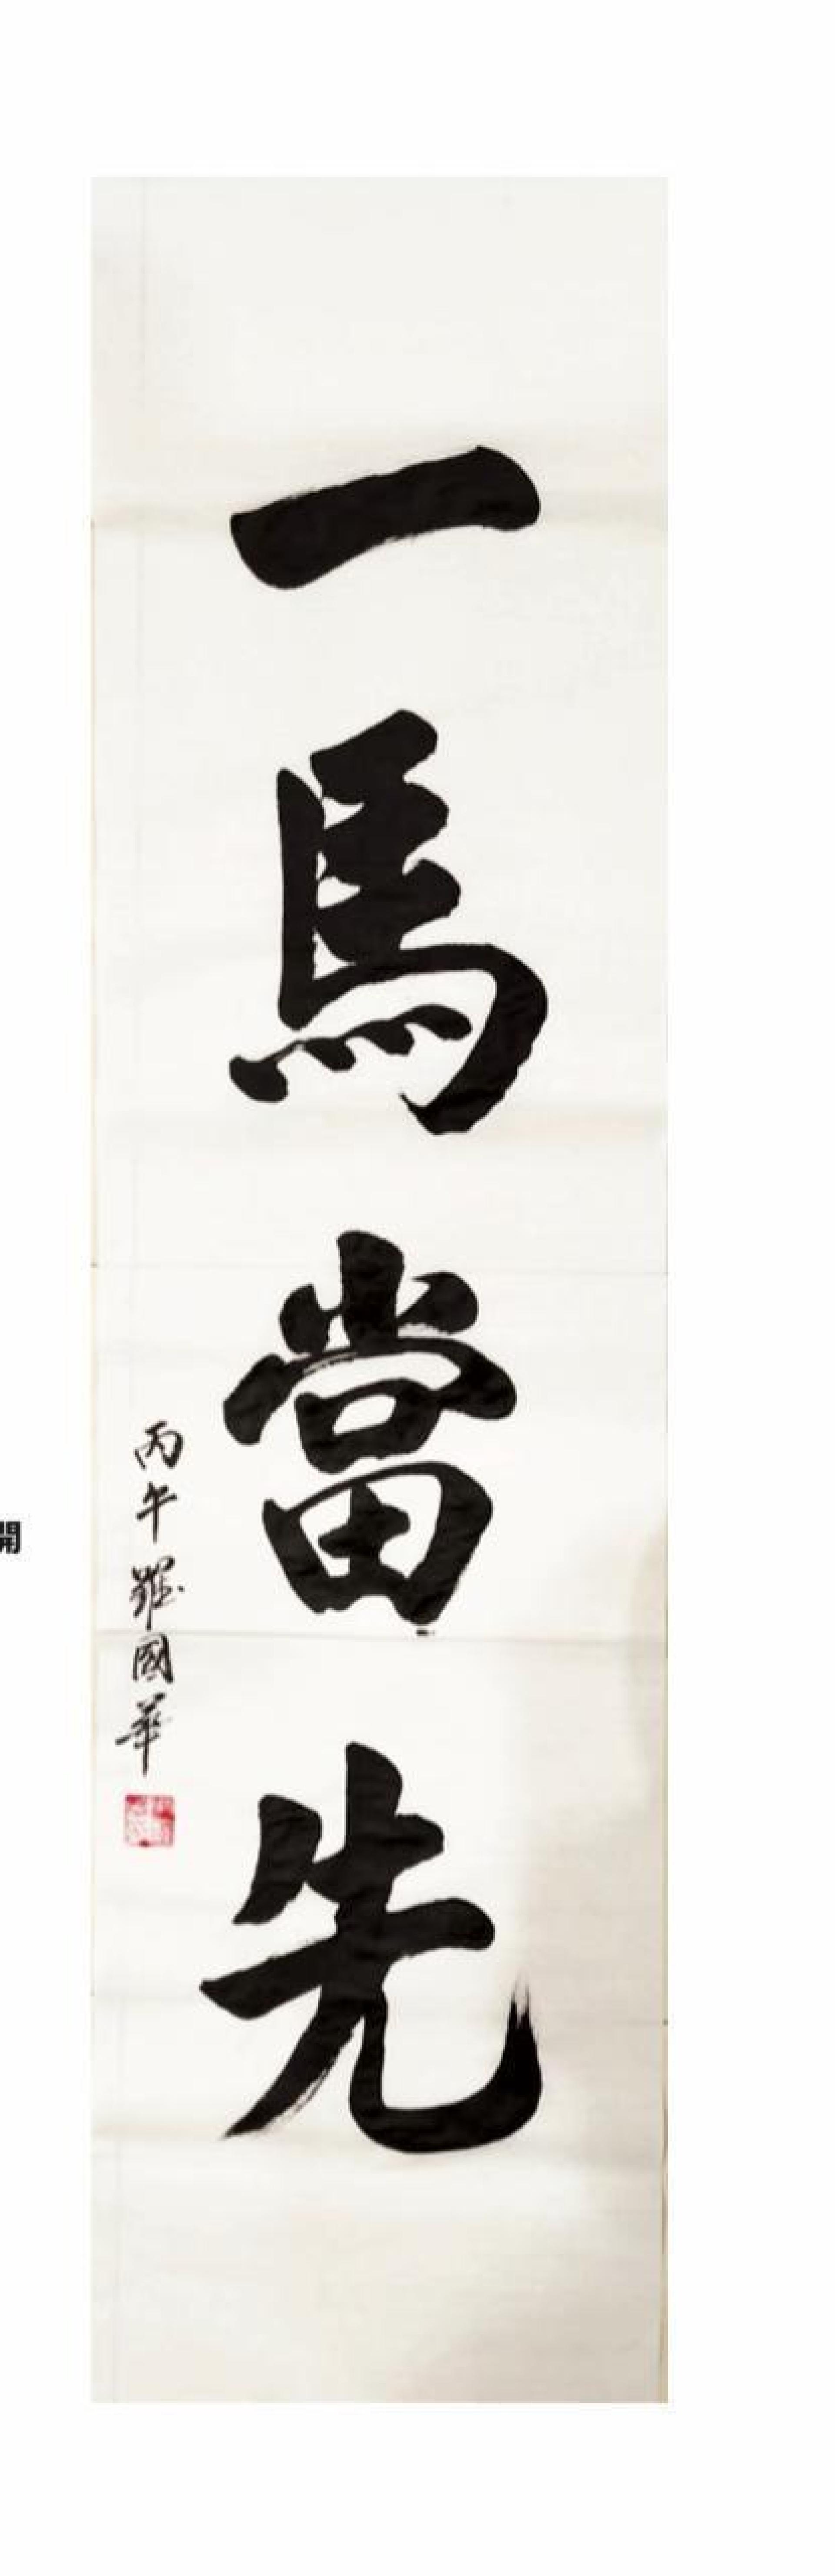 一馬當先
丙午羅國華
開